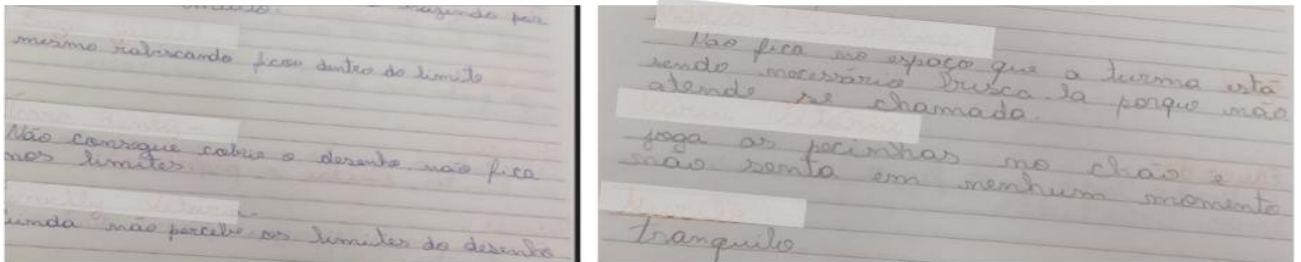 fazendo por
mesmo rabiscando ficou dentro do limite
Não consegue cobrir o desenho não fica
nos limites.
ainda não percebe os limites do desenho
Não fica no espaço que a turma está
sendo necessário busca-la porque não
atende se chamada.
joga as pecinhas no chão e
não senta em nenhum momento
Tranquilo